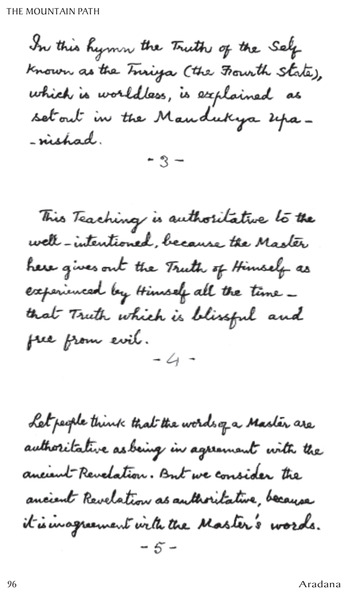 THE MOUNTAIN PATH
In this hymn the Truth of the Self
known as the Turiya (the Fourth State),
which is worldless, is explained as
set out in the Mandukya Upa-
-nishad.
-3-
This Teaching is authoritative to the
well-intentioned, because the Master
here gives out the Truth of Himself as
experienced by Himself all the time-
that Truth which is blissful and
free from evil.
-4-
Let people think that the words of a Master are
authoritative as being in agreement with the
ancient Revelation. But we consider the
ancient Revelation as authoritative, because
it is in agreement with the Master's words.
-5-
96 Aradana